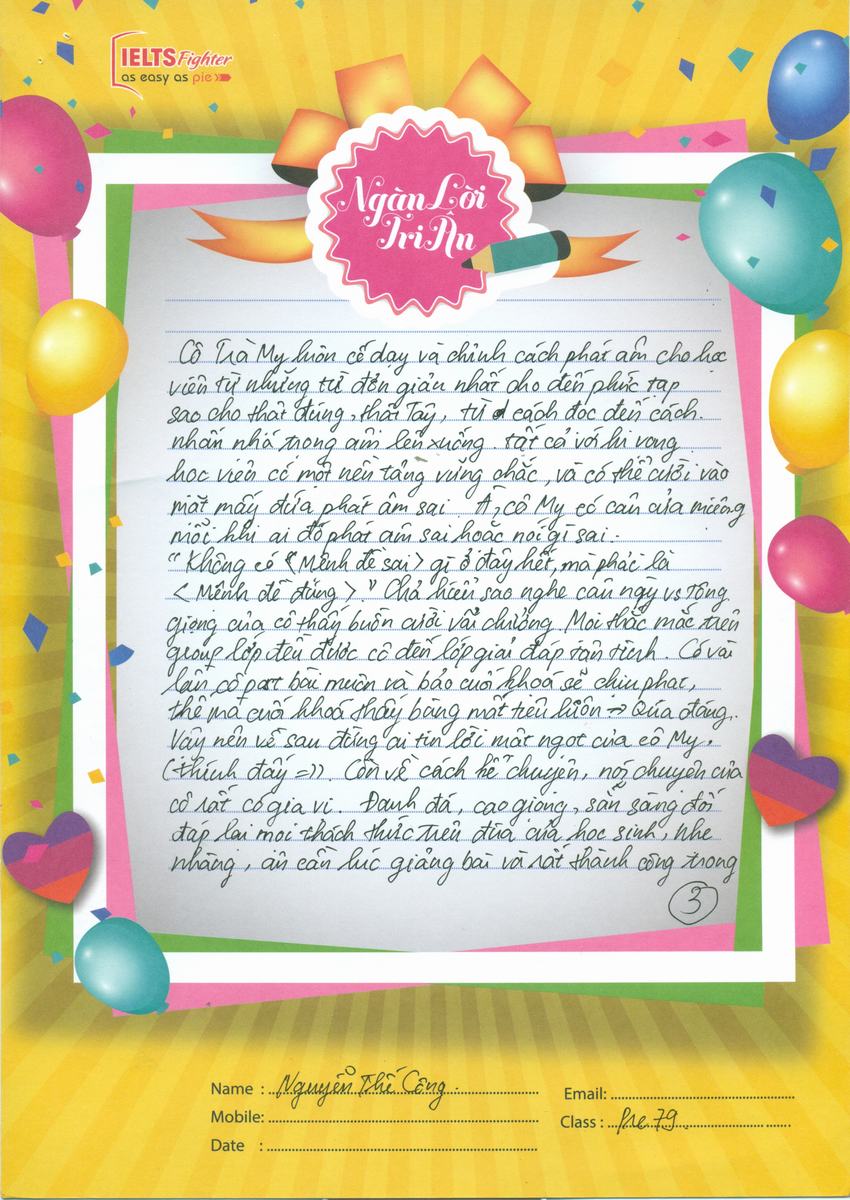 IELTS Fighter
as easy as pie
Ngàn Lời
Tri Ân
Cô Trà My luôn cố dạy và chỉnh cách phát âm cho học
viên từ những từ đơn giản nhất cho đến phức tạp
sao cho thật đúng, thật Tây, từ cách đọc đến cách.
nhấn nhá trong âm lên xuống. tất cả với hi vọng
học viên có một nền tảng vững chắc, và có thể cười vào
mặt mấy đứa phát âm sai. À, cô My có câu cửa miệng
mỗi khi ai đó phát âm sai hoặc nói gì sai.
"Không có <Mệnh đề sai> gì ở đây hết, mà phải là
<Mệnh đề đúng>." Chả hiểu sao nghe câu này vs tông
giọng của cô thấy buồn cười vãi chưởng. Mọi thắc mắc trên
group lớp đều được cô đến lớp giải đáp tận tình. Có vài
lần cô post bài muộn và bảo cuối khoá sẽ chịu phạt,
thế mà cuối khoá thấy bùng mất tiêu luôn → Qúa đáng.
Vậy nên về sau đừng ai tin lời mật ngọt của cô My.
(thính đấy =)). Còn về cách kể chuyện, nói chuyện của
cô rất có gia vị. Đanh đá, cao giọng, sẵn sàng đối
đáp lại mọi thách thức trêu đùa của học sinh, nhẹ
nhàng, ân cần lúc giảng bài và rất thành công trong
3
Name : Nguyễn Thế Công.
Email:
Mobile:
Class : Pre 79.
Date :